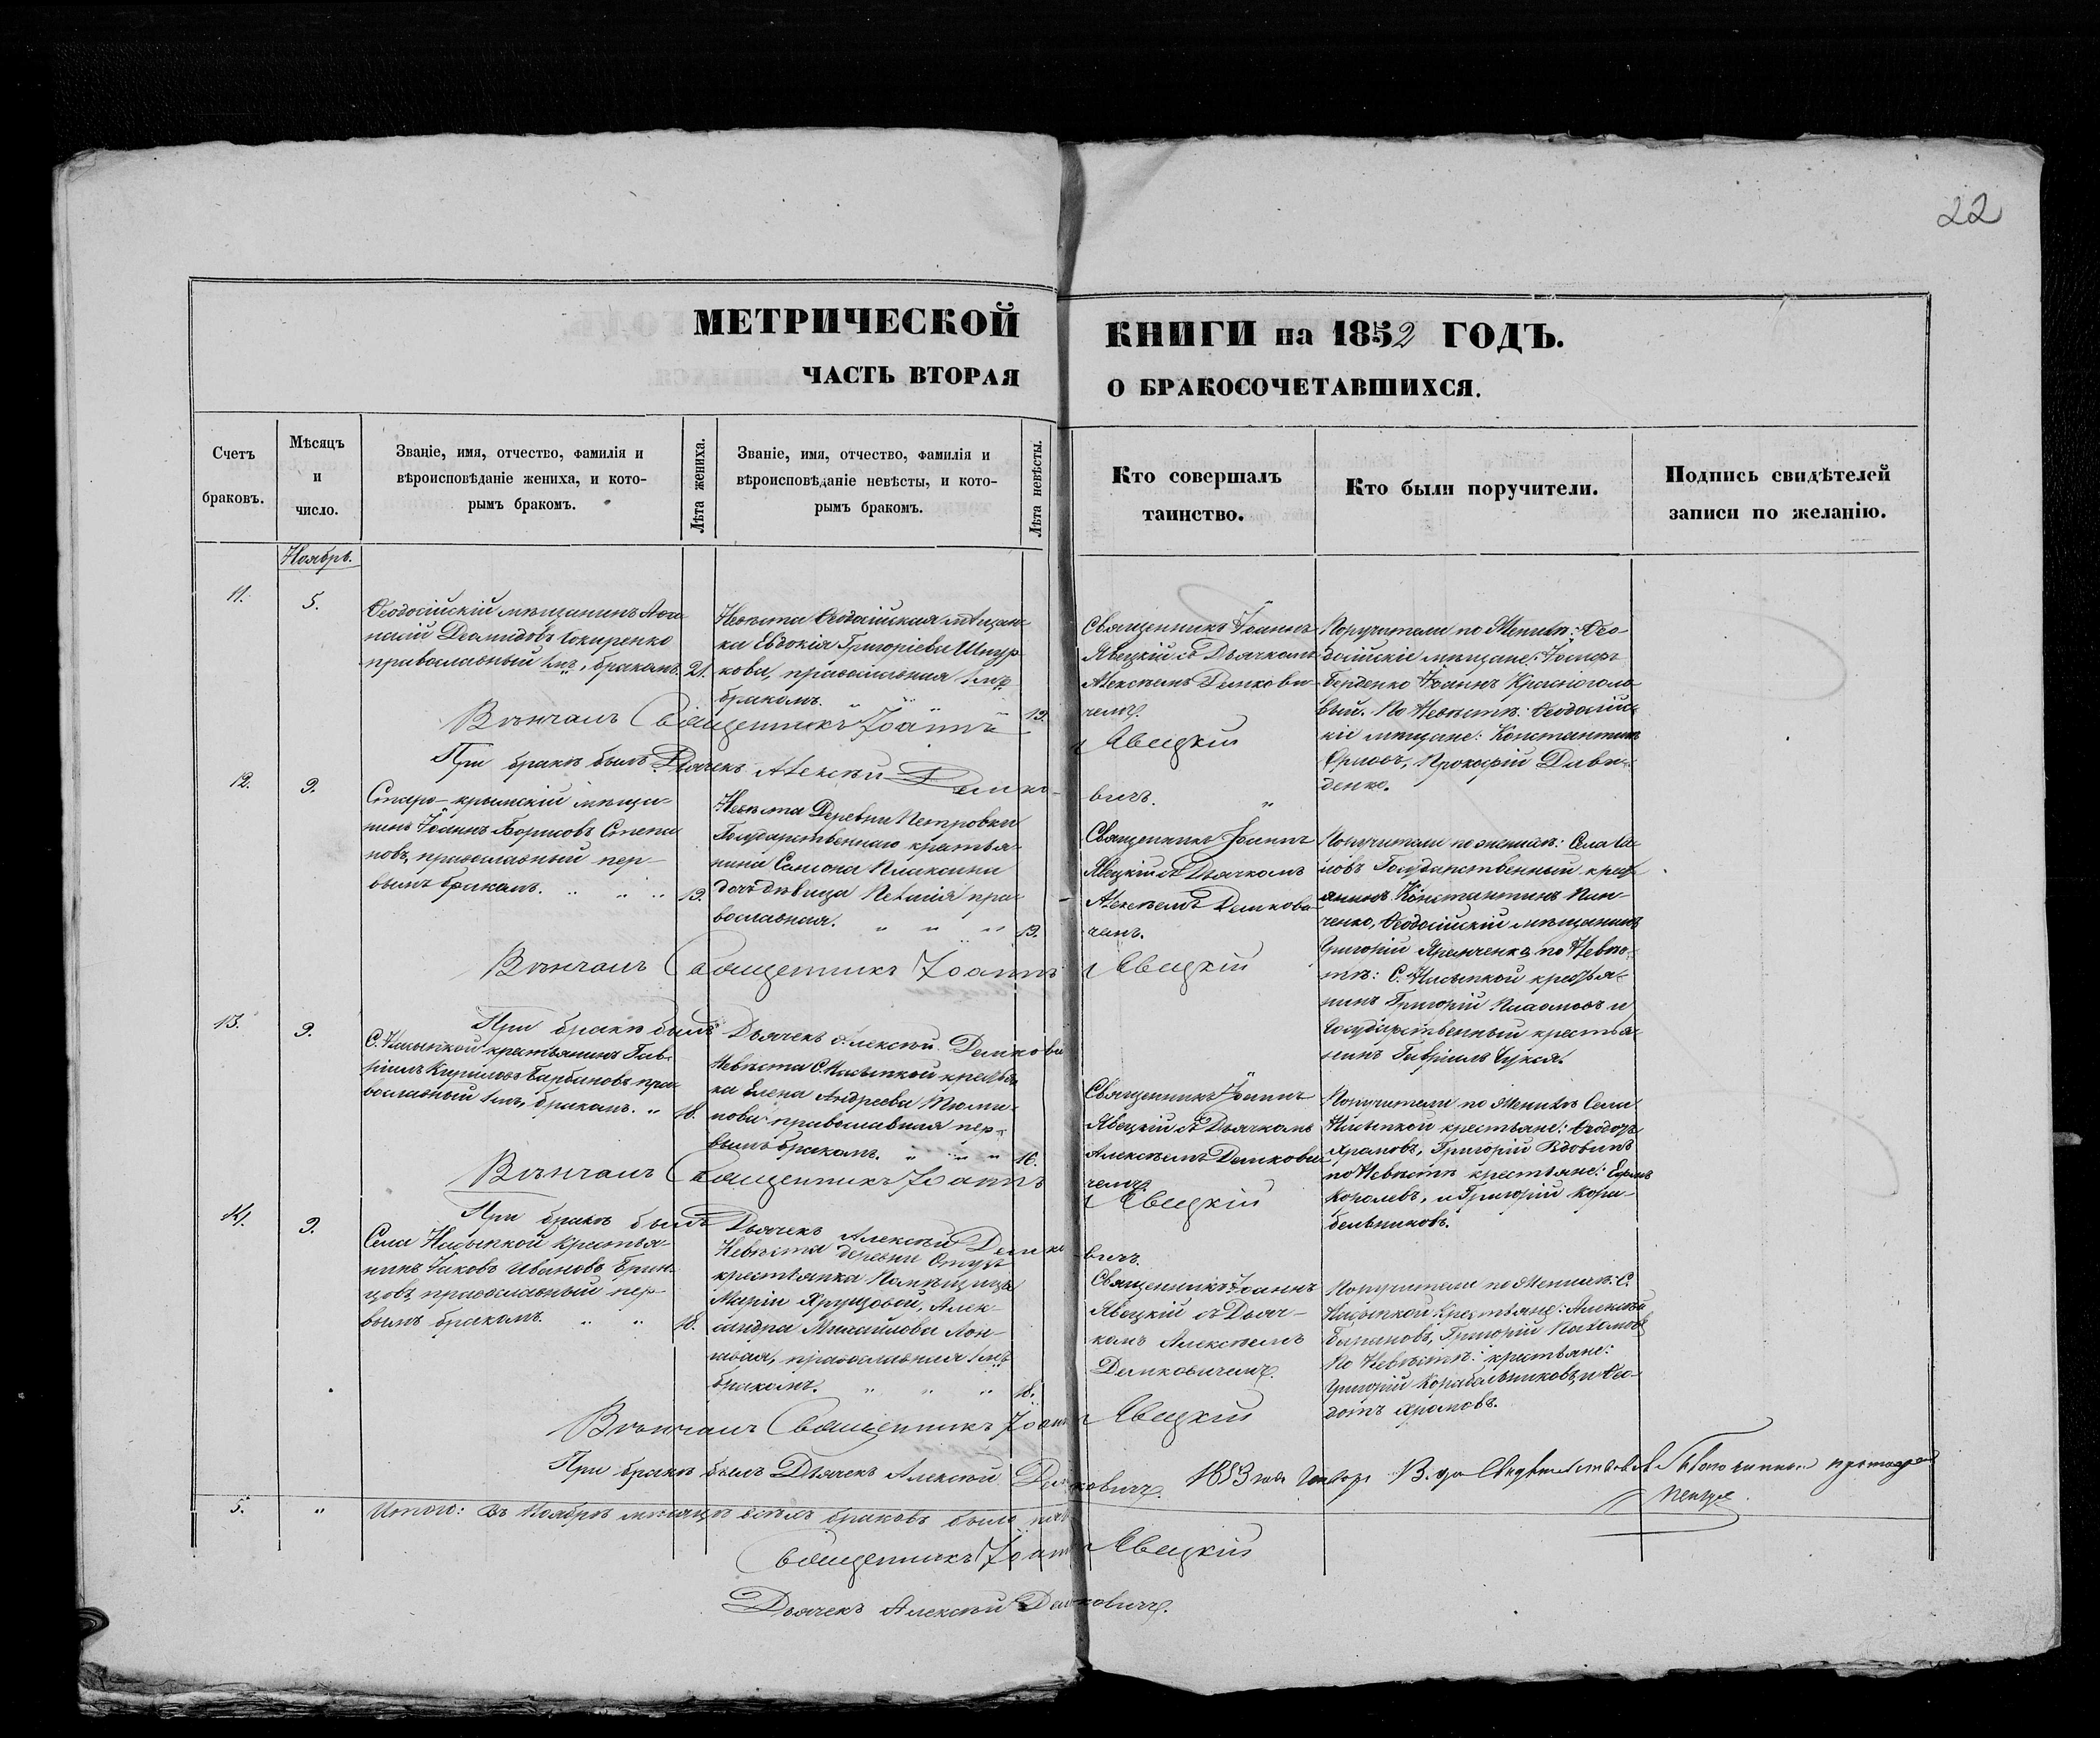 22
МЕТРИЧЕСКОЙ КНИГИ на 1852 ГОДЪ.
ЧАСТЬ ВТОРАЯ О БРАКОСОЧЕТАВШИХСЯ.
Счетъ
браковъ.
Мѣсяцъ
и
число.
Званіе, имя, отчество, фамилія и
вѣроисповѣданіе жениха, и кото-
рымъ бракомъ.
Лѣта жениха.
Званіе, имя, отчество, фамилія и
вѣроисповѣданіе невѣсты, и кото-
рымъ бракомъ.
Лѣта невѣсты.
Кто совершалъ
таинство.
Кто были поручители.
Подпись свидѣтелей
записи по желанію.
Ноябрь.
11.
5.
Ѳеодосійскій мѣщанинъ Аѳа-
насій Демидовъ
православный 1мъ, бракомъ. 21.
Невѣста Ѳеодосійская мѣщан-
ка Евдокія Григоріева Шкур-
кова, православная 1мъ
бракомъ. 19.
Священникъ Іоаннъ
Явецкій съ Дьячкомъ
Алексѣемъ Демкови-
чемъ.
Поручители по Женихѣ: Ѳео-
досійскіе мѣщане: Іосифъ
Берденко Іоаннъ Красноголо-
вый. По Невѣстѣ: Ѳеодосійс-
кіе мѣщане: Константинъ
Орловъ, Прокофій Диви-
денко.
Вѣнчалъ Священникъ Іоаннъ Явецкій
При бракѣ былъ Дьячекъ Алексѣй Демко-
вичъ.
12.
9.
Старо-крымскій мѣща-
нинъ Іоаннъ Борисовъ Степа-
новъ, православный пер-
вымъ бракомъ. 19.
Невѣста Деревни Петровки
Государственнаго крестья-
нина Самсона Плаксина
дочь дѣвица пра-
вославная. 19.
Священникъ Іоаннъ
Явецкій съ Дьячкомъ
Алексѣемъ Демкови-
чемъ.
Поручители по женихѣ: Села
Государственный крес-
янинъ Константинъ
ченко, Ѳеодосійскій мѣщанинъ
Григорій Яременко, по Невѣ-
стѣ: С. Насыпкой крестья-
нинъ Григорій и
Государственный крестья-
нинъ Гавріилъ
Вѣнчалъ Священникъ Іоаннъ Явецкій
При бракѣ былъ Дьячекъ Алексѣй Демкови
13.
9.
С. Насыпкой крестьянинъ Гав-
ріилъ Кириловъ Барбановъ пра-
вославный 1мъ, бракомъ. 18.
Невѣста С. Насыпкой крестьян-
ка Елена Андреева Тюми-
нова православная пер-
вымъ бракомъ. 16.
Священникъ Іоаннъ
Явецкій съ Дьячкомъ
Алексѣемъ Демкови-
чемъ.
Поручители по Женихѣ Села
Насыпкой крестьяне: Ѳеодоръ
Храмовъ, Григорій Вдовинъ
по Невѣстѣ крестьяне: Ефимъ
Королевъ, и Григорій Кора-
бельниковъ.
Вѣнчалъ Священникъ Іоаннъ Явецкій
При бракѣ былъ Дьячекъ Алексѣй Демко-
вичъ.
14.
9.
Села Насыпкой Крестья-
нинъ Іаковъ Ивановъ Брин-
цовъ, православный пер-
вымъ бракомъ. 18.
Невѣста деревни Отузъ
крестьянка Помѣщицы
Маріи Хрущовой, Алек-
сандра Михайлова
православная 1мъ
бракомъ. 18.
Священникъ Іоаннъ
Явецкій съ Дьяч-
комъ Алексѣемъ
Демковичемъ.
Поручители по Женихѣ: С.
Насыпкой Крестьяне: Алексѣй
Барановъ, Григорій Пахомовъ
По Невѣстѣ: крестьяне:
Григорій Корабельниковъ, и Ѳео-
дотъ Храмовъ.
Вѣнчалъ Священникъ Іоаннъ Явецкій
При бракѣ былъ Дьячекъ Алексѣй Демковичъ.
1853 года Генваря 13. дня Свидѣтельствовалъ Благочинный протоіерей
5.
Итого: Въ Ноябрѣ мѣсяцѣ всѣхъ браковъ было пять
Священникъ Іоаннъ Явецкій
Дьячекъ Алексѣй Демковичъ.